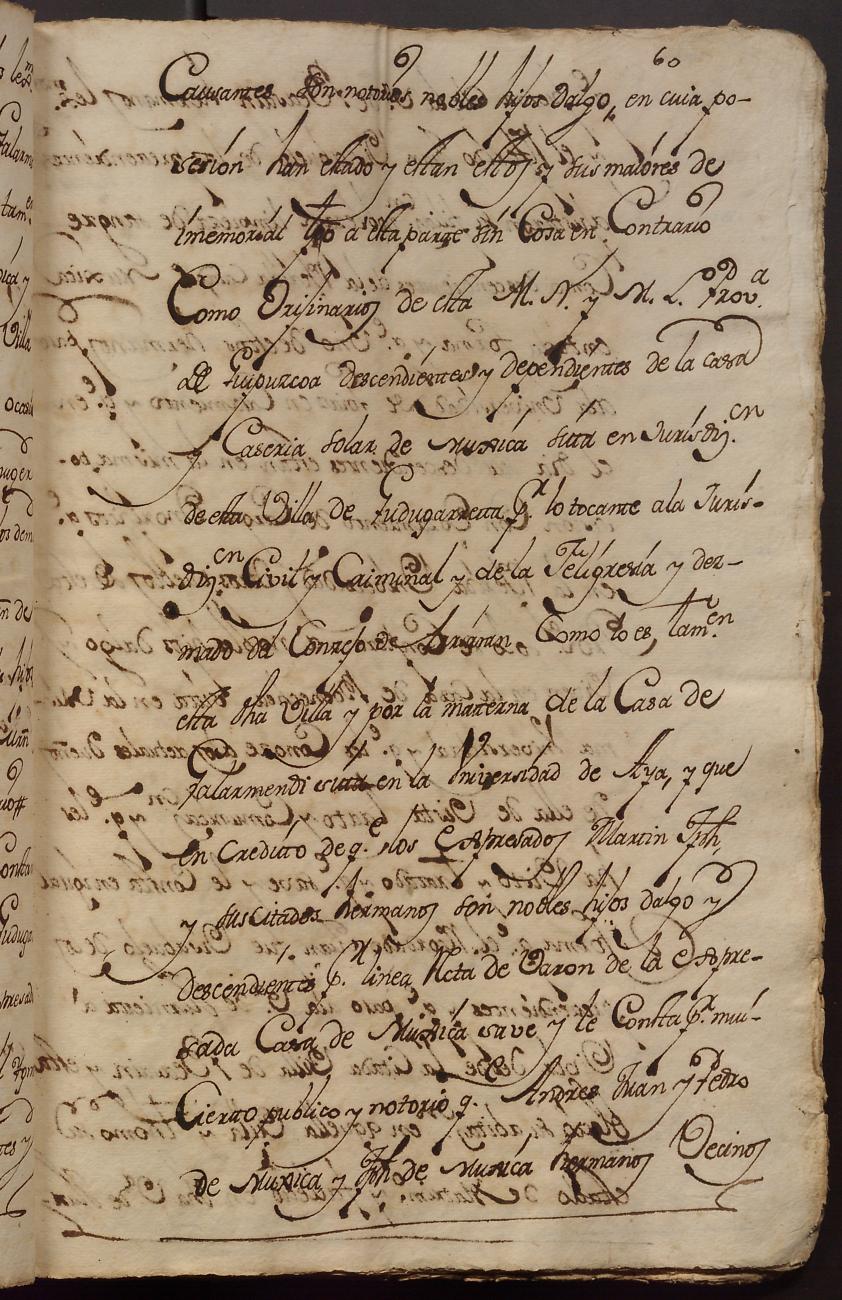 60
Causantes son notorios nobles hijos dalgo, en cuia po-
sesión han estado y estan estos y sus maiores de
imemorial tpo a esta parte sin Cosa en Contrario
Como Orijinarios de esta M. N. y M. L. Prov.a
de Guipuzcoa descendientes y dependientes de la casa
y Caseria solar de Muxica sita en Jurisdiz.en
de esta Villa de Gudugarreta p.r lo tocante a la Juris-
diz.en Civil y Criminal y de la Feligresía y dez-
mado del Conzejo de Astigarr Como lo es, tam.en
esta dha Villa y por la materna de la Casa de
Galarmendi sita en la Vniversidad de Aya, y que
en credito de q.e los Expresados Martin Jph,
y suscitados hermanos son nobles hijos dalgo y
descendientes p.r linea Recta de Varon de la Expre-
sada Casa de Muxica save y le Consta p.r mui
Cierto publico y notorio q.e Andres Juan y Pedro
de Muxica y Jph de Muxica hermanos Vecinos